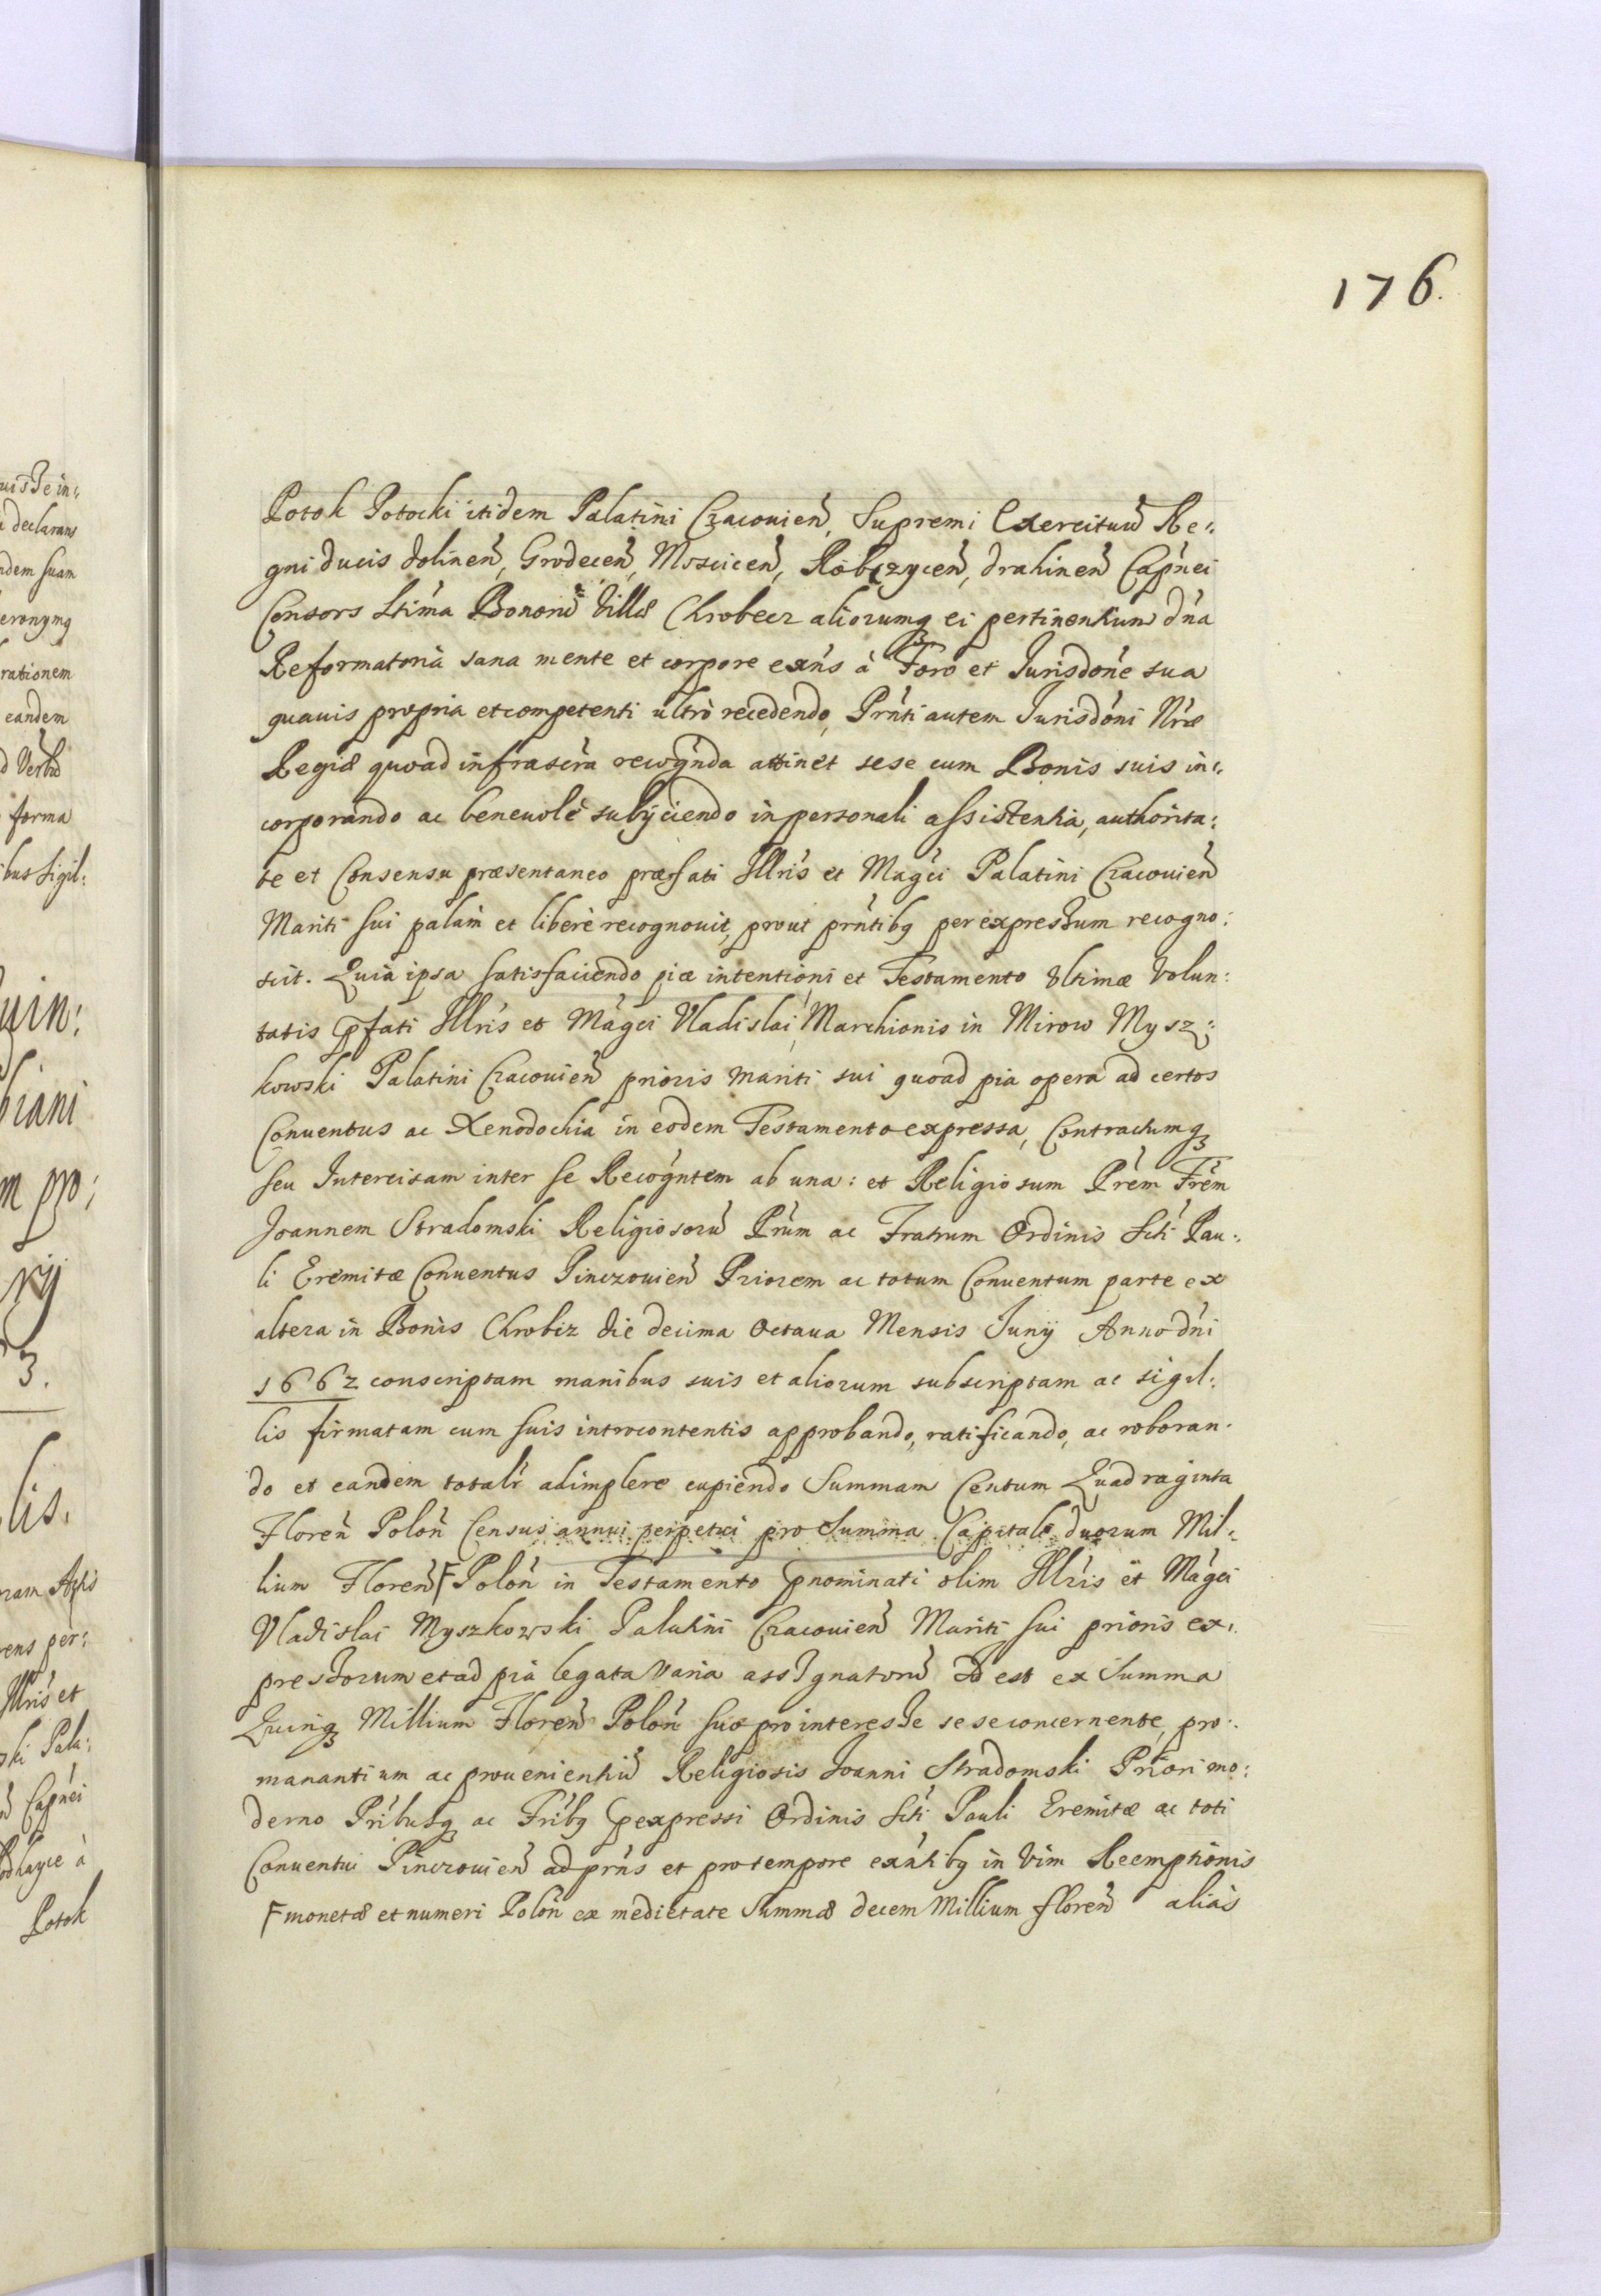 176.
Potok Potocki itidem Palatini Cracouien̄, Supremi Exercituū Re:
gni Ducis dolinen̄, Grodecen̄, Mosciceń, Robczycen̄, drahinen̄ Capńei
Consors Ltima Bonorū Villæ Chrobecz aliorumq ei pertinentium dńa
Reformatoria sana mente et corpore exńs à Foro et Jurisdońe sua
quauis propria et competenti ultrò recedendo, Prńti autem Jurisdońi Nræ
Regiæ quoad infrascra recogńda attinet sese cum Bonis suis in:
corporando ac beneuolè subÿciendo in personali assistentia, authorita:
te et Consensu præsentaneo præfati Illrís et Magći Palatini Cracouien̄
Mariti sui palam et liberè recognouit, prout prńtibq per expressum recogno:
scit. Quia ipsa satisfaciendo piæ intentioni et Testamento Ultimæ Volun:
tatis pfati Illrís et Mágci Vladislai Marchionis in Mirow Mysz:
kowski Palatini Cracouien̄ prioris Mariti sui quoad pia opera ad certos
Conuentus ac Xenodochia in eodem Testamento expressa, Contractumq
seu Intercisam inter se Recogńtem ab una: et Religiosum Prem Frem
Joannem Stradomski Religiosorū Prum ac Fratrum Ordinis Scti Pau:
li Eremitæ Conuentus Pinczouien̄ Priorem ac totum Conuentum parte ex
altera in Bonis Chrobiz die decima Octaua Mensis Junÿ Anno dńi
1662 conscriptam manibus suis et aliorum subscriptam ac sigil:
lis firmatam cum suis introcontentis approbando, ratificando, ac roboran:
do et eandem totalr adimplere cupiendo Summam Centum Quadraginta
Floren̄ Polon̄ Census annui perpetui pro Summa Capitale duorum Mil:
lium Floren̄ F Polon̄ in Testamento pnominati olim Illrís et Mágci
Vladislai Myszkowski Palatini Cracouien̄ Mariti sui prioris ex:
pressorum et ad pia legata Varia assignatorū Id est ex Summa
Quinq Millium Floren̄ Polon̄ suo pro interesse se se concernente, pro:
manantium ac prouenientiū Religiosis Joanni Stradomski Priori mo:
derno Pribusq ac Fribq pexpressi Ordinis Scti Pauli Eremitæ ac toti
Conuentui Pinczouien̄ ad prńs et pro tempore exńtibq in Vim Reemptionis
F monetæ et numeri Polon̄ ex medietate Summæ decem Millium floren̄ alias